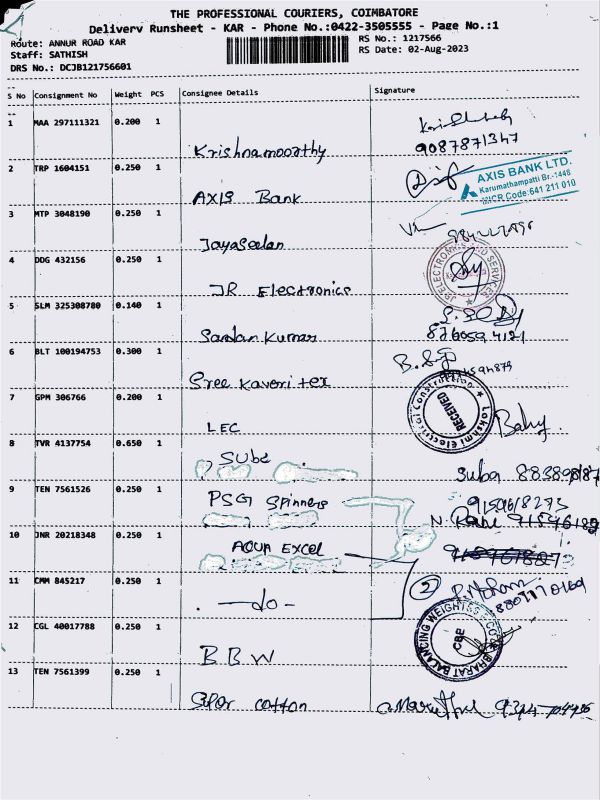 THE PROFESSIONAL COURIERS, COIMBATORE
Delivery Runsheet - KAR - Phone No.:0422-3505555 - Page No.:1
Route: ANNUR ROAD KAR RS No.: 1217566
Staff: SATHISH RS Date: 02-Aug-2023
DRS No.: DCJB121756601
S No Consignment No Weight PCS Consignee Details Signature
1 MAA 297111321 0.200 1
Krishnamoorthy 9087871347
2 TRP 1604151 0.250 1
AXIS Bank
AXIS BANK LTD.
Karumathampatti Br.-1448
MICR Code:641 211 010
3 MTP 3048190 0.250 1
Jayaseelan
4 DDG 432156 0.250 1
JR Electronics
JR ELECTRONICS AND SERVICES
5 SLM 325308780 0.140 1
Sardan Kumar
6 BLT 100194753 0.300 1
Sree Kaveri tex
7 GPM 306766 0.200 1
LEC
Lakshmi Electrical Construction
RECEIVED
8 TVR 4137754 0.650 1
Suba
Suba
9 TEN 7561526 0.250 1
PSG Spinners 9159618273
10 JNR 20218348 0.250 1
AQUA EXCEL
11 CMM 845217 0.250 1
-do-
2
12 CGL 40017788 0.250 1
BBW
BHARAT BALANCING WEIGHTS
CBE
13 TEN 7561399 0.250 1
cotton